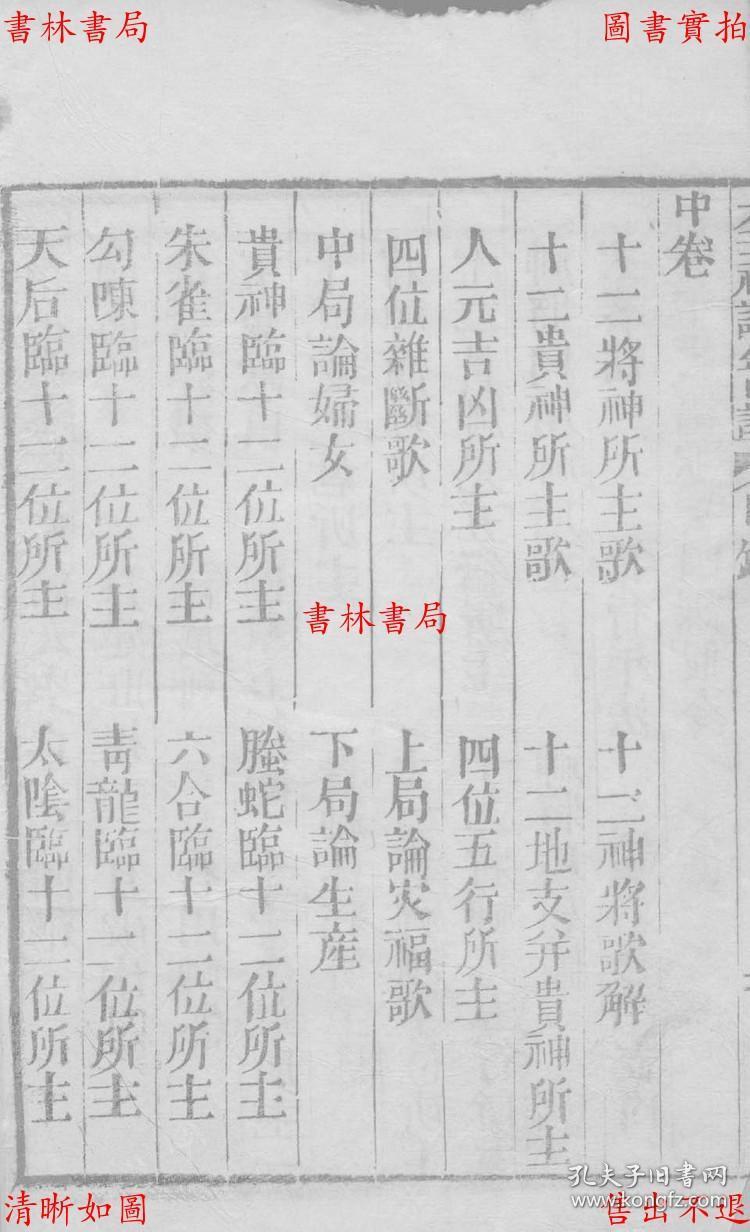 書林書局
圖書實拍
中卷
十二將神所主歌
十二神將歌解
十二貴神所主歌
十二地支并貴神所主
人元吉凶所主
四位五行所主
四位雜斷歌
上局論災福歌
中局論婦女
下局論生産
貴神臨十二位所主
螣蛇臨十二位所主
朱雀臨十二位所主
六合臨十二位所主
勾陳臨十二位所主
青龍臨十二位所主
天后臨十二位所主
太陰臨十二位所主
書林書局
孔夫子旧書网
清晰如圖
售出不退